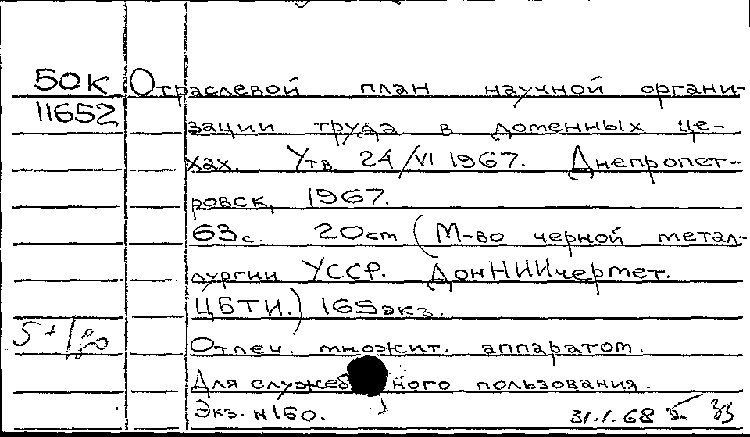 50К Отраслевой план научной органи-
11652 зации труда в доменных це-
хах. Утв. 24/VI 1967. Днепропет-
ровск, 1967.
63с. 20см (М-во черной метал-
лургии УССР. ДонНИИчермет.
ЦБТИ.) 165экз.
Отпеч. множит. аппаратом.
Для служебного пользования.
Экз. №160. 31.1.68